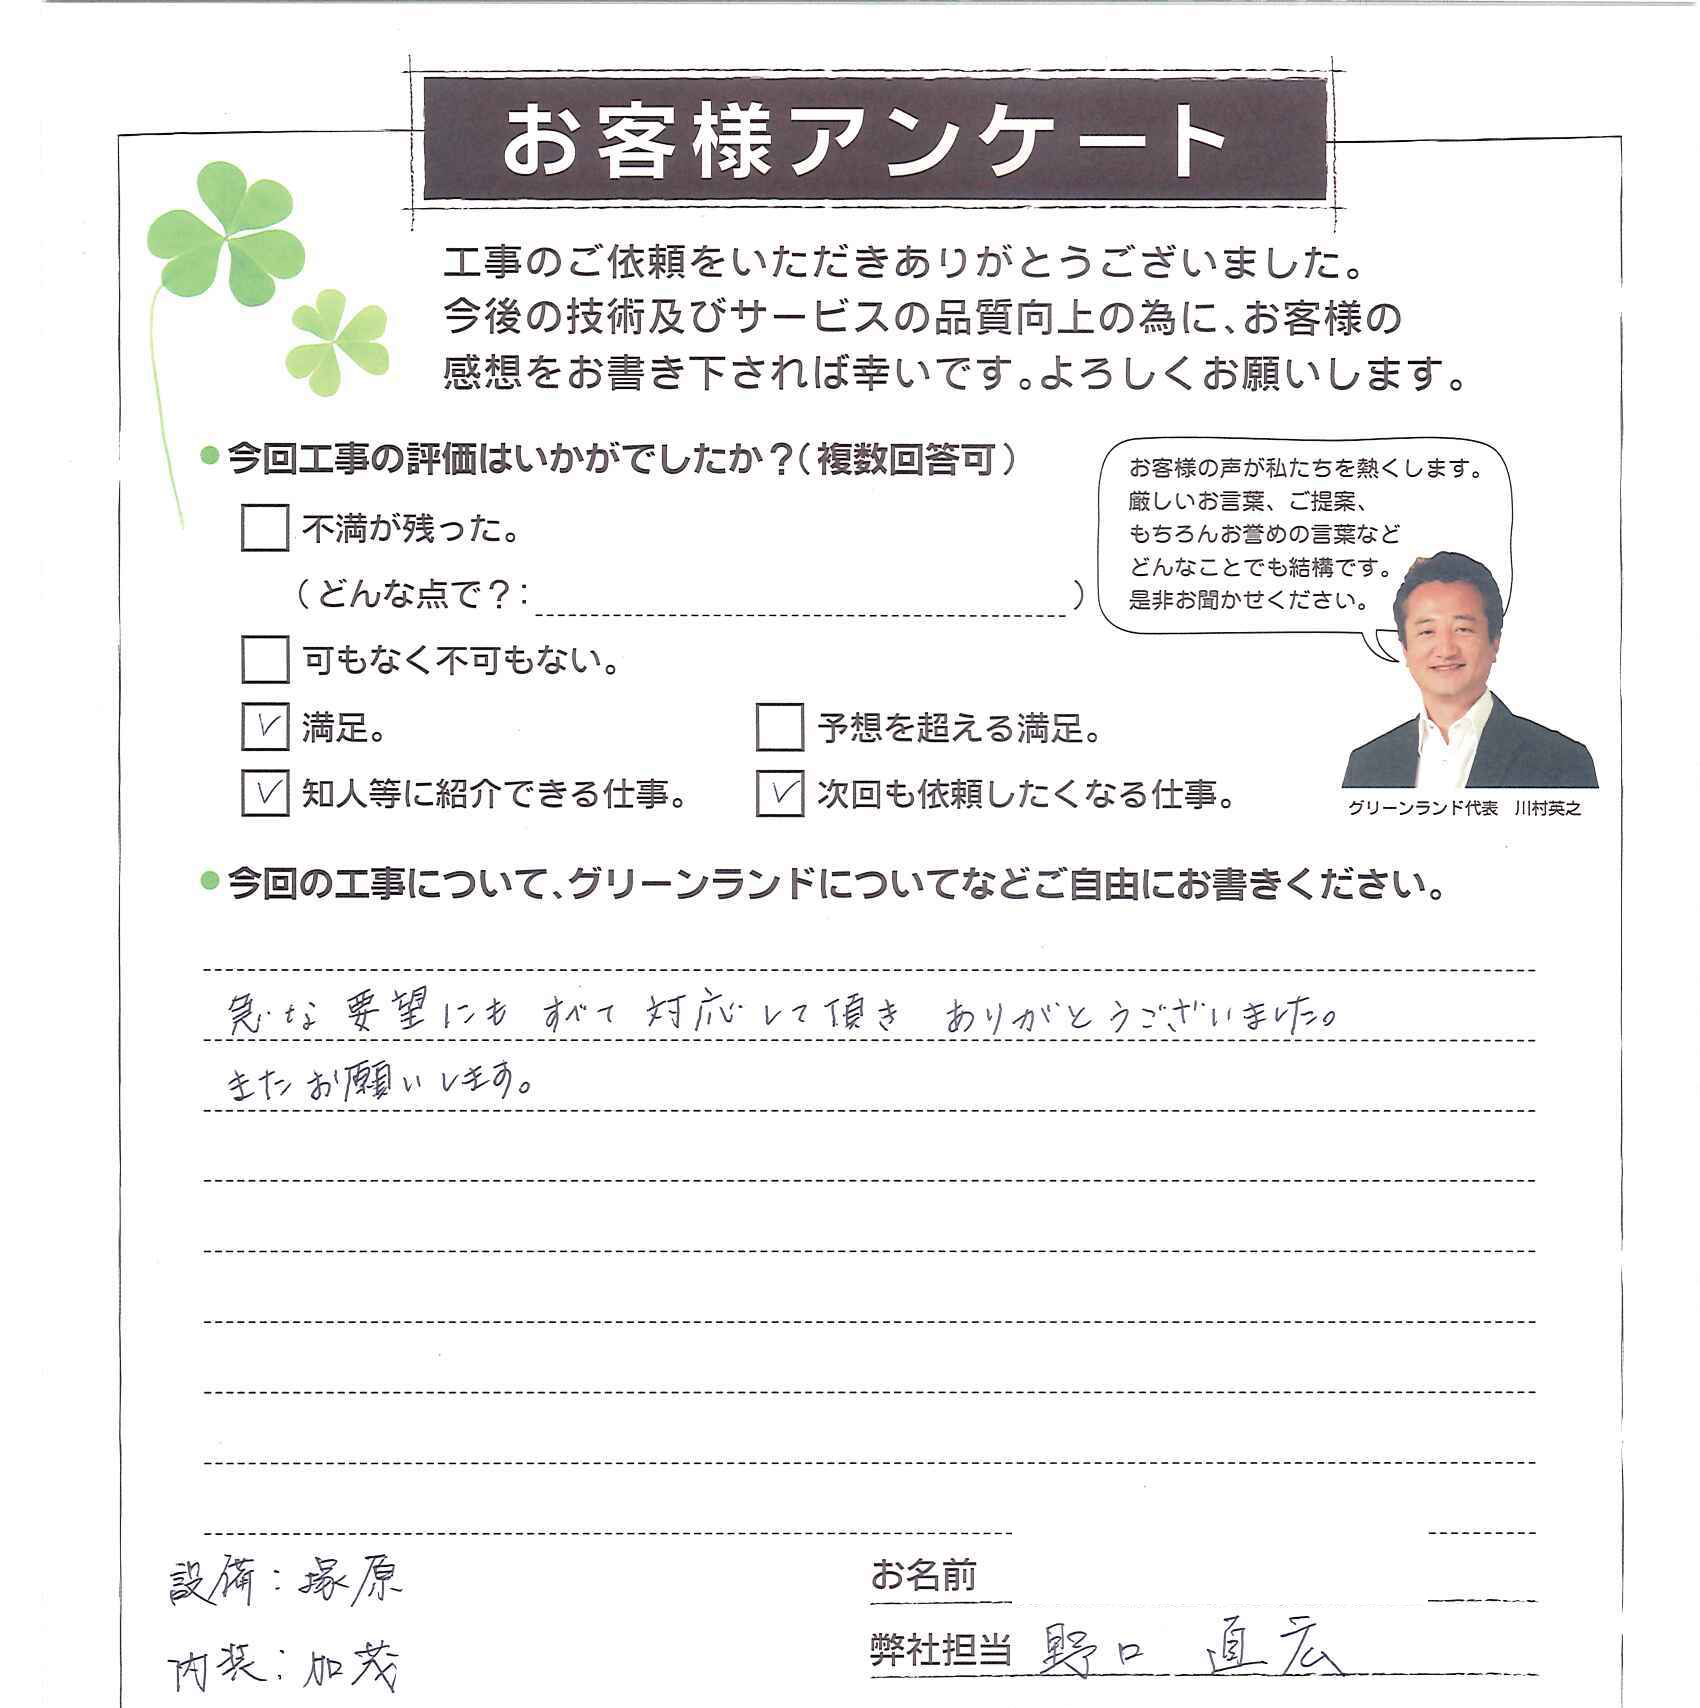 お客様アンケート
工事のご依頼をいただきありがとうございました。
今後の技術及びサービスの品質向上の為に、お客様の
感想をお書き下されば幸いです。よろしくお願いします。
●今回工事の評価はいかがでしたか？（複数回答可）
不満が残った。
（どんな点で？：　　　）
可もなく不可もない。
満足。
予想を超える満足。
知人等に紹介できる仕事。
次回も依頼したくなる仕事。
お客様の声が私たちを熱くします。
厳しいお言葉、ご提案、
もちろんお誉めの言葉など
どんなことでも結構です。
是非お聞かせください。
グリーンランド代表　川村英之
●今回の工事について、グリーンランドについてなどご自由にお書きください。
急な要望にも すべて 対応して頂き ありがとうございました。
またお願いします。
設備：塚原
内装：加茂
お名前
弊社担当 野口 直広